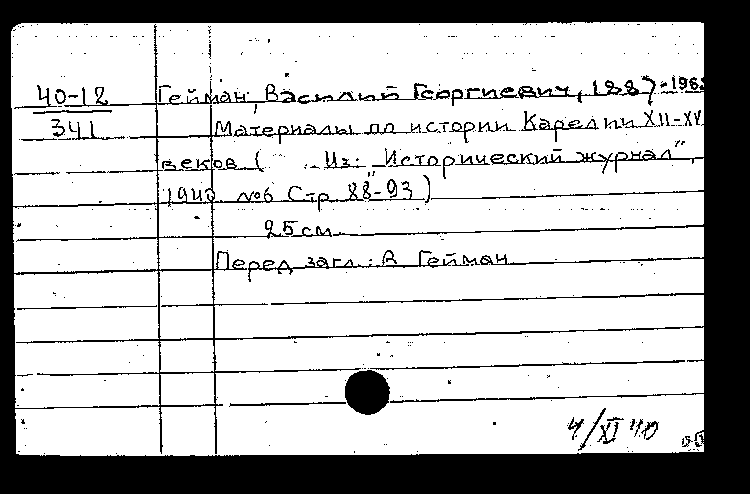 40-12 Гейман, Василий Георгиевич, 1887-196
341 Материалы по истории Карелии XII-XV
веков ( Из: "Исторический журнал",
1940 №6 Стр. 88-93)
25 см.
Перед загл.: В. Гейман
4/XI 40